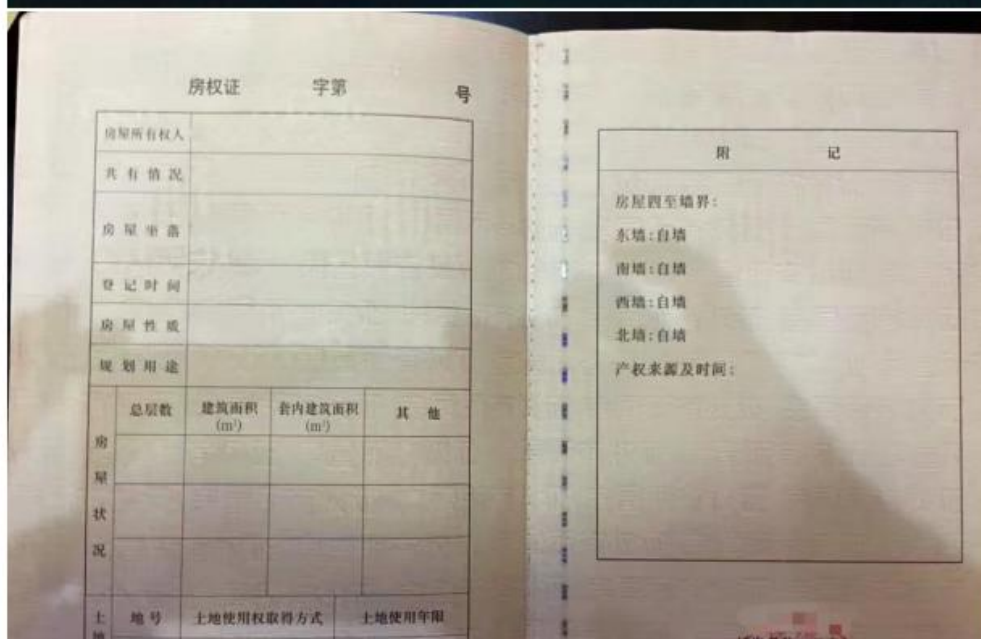 房权证 字第 号
房屋所有权人
共有情况
房屋坐落
登记时间
房屋性质
规划用途
房屋状况
总层数 建筑面积(m²) 套内建筑面积(m²) 其他
地号 土地使用权取得方式 土地使用年限
土地
附记
房屋四至墙界:
东墙:自墙
南墙:自墙
西墙:自墙
北墙:自墙
产权来源及时间: